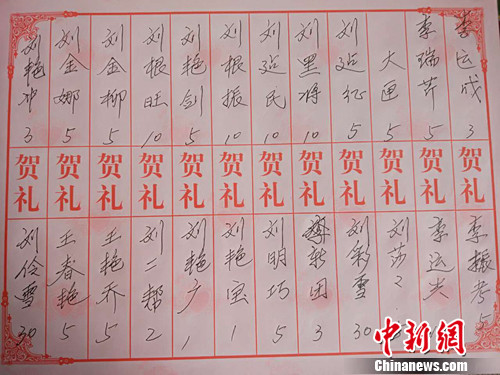 李运成 3
李瑞芹 5
大 5
刘运征 5
刘黑 10
刘运民 10
刘根振 10
刘艳剑 5
刘根旺 10
刘金柳 5
刘金娜 5
刘艳冲 3
贺礼
贺礼
贺礼
贺礼
贺礼
贺礼
贺礼
贺礼
贺礼
贺礼
贺礼
贺礼
李振考 5
李运
刘莎
刘彩雪 30
团 3
刘明巧 5
刘艳宝 1
刘艳广 1
刘二帮 2
王艳乔 5
王春艳 5
刘伶雪 30
中新网
Chinanews.com